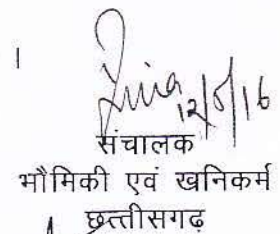 ।
12/5/16
संचालक
भौमिकी एवं खनिकर्म
छत्तीसगढ़